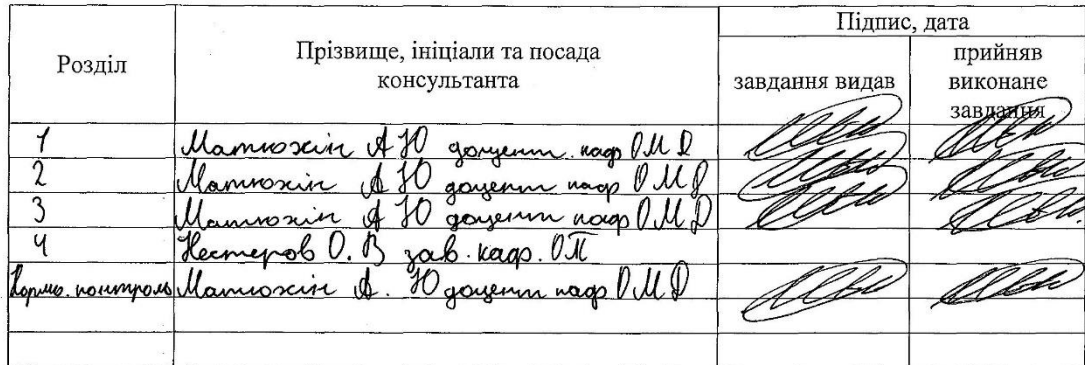 Розділ
Прізвище, ініціали та посада
консультанта
Підпис, дата
завдання видав
прийняв
виконане
завдання
1 Матюхін А Ю доцент. каф ОМД
2 Матюхін А Ю доцент каф ОМД
3 Матюхін А Ю доцент каф ОМД
4 Нестеров О. В зав. каф. ОП
Нормо. контроль Матюхін А. Ю доцент каф ОМД